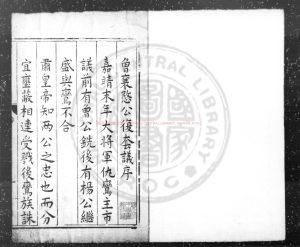 魯襄愍公後奏議序
嘉靖末年大將軍仇鸞主市
議前有曾公銑後有楊公繼
盛與鸞不合
肅皇帝知兩公之忠也而分
宜壅蔽相連受戮後鸞族誅
CENTRAL LIBRARY